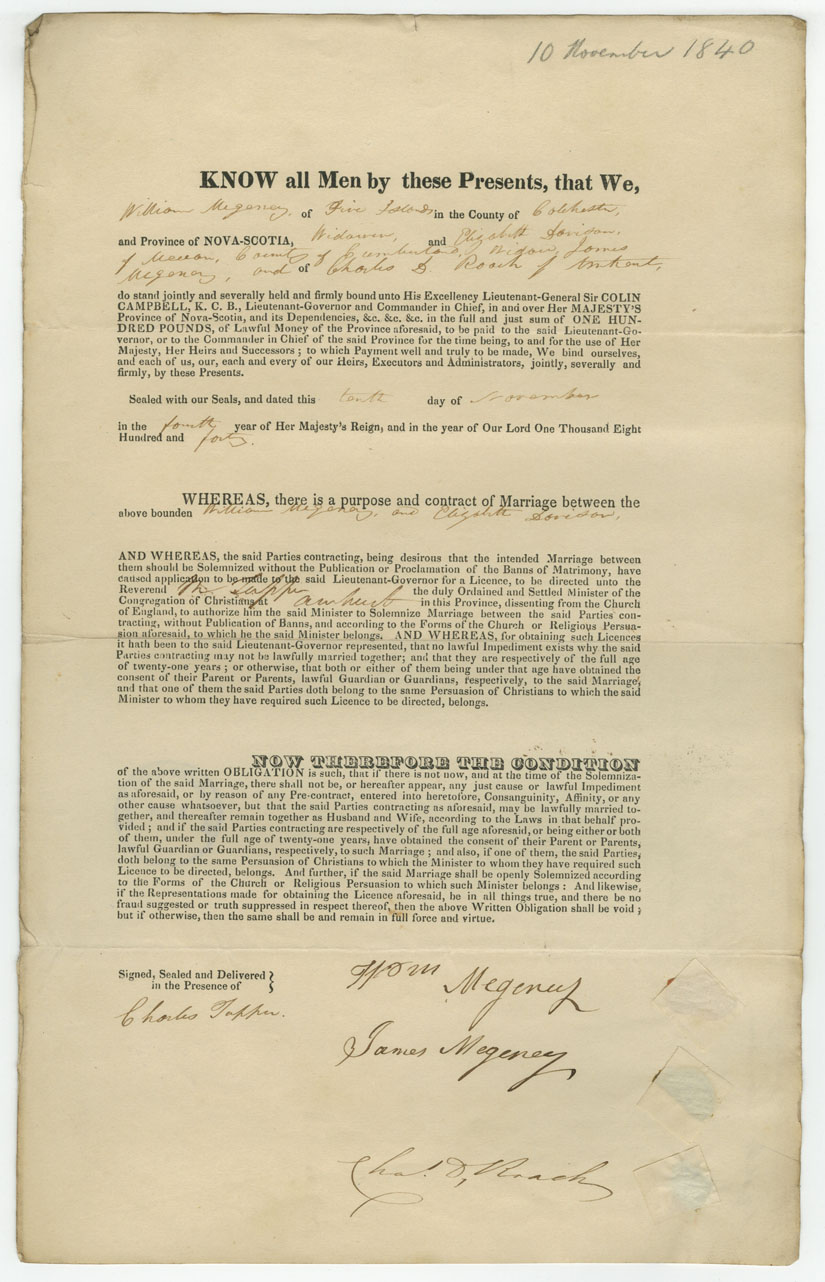 10 November 1840
KNOW all Men by these Presents, that We,
William Megeney, of Five Islands in the County of Colchester,
and Province of NOVA-SCOTIA, Widower, and Elizabeth Davison,
of Maccan, County of Cumberland, Widow, James
Megeney, and of Charles D Roach of Amherst,
do stand jointly and severally held and firmly bound unto His Excellency Lieutenant-General Sir COLIN
CAMPBELL, K. C. B., Lieutenant-Governor and Commander in Chief, in and over Her MAJESTY'S
Province of Nova-Scotia, and its Dependencies, &c. &c. &c. in the full and just sum of ONE HUN-
DRED POUNDS, of Lawful Money of the Province aforesaid, to be paid to the said Lieutenant-Go-
vernor, or to the Commander in Chief of the said Province for the time being, to and for the use of Her
Majesty, Her Heirs and Successors ; to which Payment well and truly to be made, We bind ourselves,
and each of us, our, each and every of our Heirs, Executors and Administrators, jointly, severally and
firmly, by these Presents.
Sealed with our Seals, and dated this tenth day of November
in the fourth year of Her Majesty's Reign, and in the year of Our Lord One Thousand Eight
Hundred and forty.
WHEREAS, there is a purpose and contract of Marriage between the
above bounden William Megeney, and Elizabeth Davison,
AND WHEREAS, the said Parties contracting, being desirous that the intended Marriage between
them should be Solemnized without the Publication or Proclamation of the Banns of Matrimony, have
caused application to be made to the said Lieutenant-Governor for a Licence, to be directed unto the
Reverend Mr Tupper the duly Ordained and Settled Minister of the
Congregation of Christians at Amherst in this Province, dissenting from the Church
of England, to authorize him the said Minister to Solemnize Marriage between the said Parties con-
tracting, without Publication of Banns, and according to the Forms of the Church or Religious Persua-
sion aforesaid, to which he the said Minister belongs. AND WHEREAS, for obtaining such Licences
it hath been to the said Lieutenant-Governor represented, that no lawful Impediment exists why the said
Parties contracting may not be lawfully married together; and that they are respectively of the full age
of twenty-one years ; or otherwise, that both or either of them being under that age have obtained the
consent of their Parent or Parents, lawful Guardian or Guardians, respectively, to the said Marriage,
and that one of them the said Parties doth belong to the same Persuasion of Christians to which the said
Minister to whom they have required such Licence to be directed, belongs.
NOW THEREFORE THE CONDITION
of the above written OBLIGATION is such, that if there is not now, and at the time of the Solemniza-
tion of the said Marriage, there shall not be, or hereafter appear, any just cause or lawful Impediment
as aforesaid, or by reason of any Pre-contract, entered into heretofore, Consanguinity, Affinity, or any
other cause whatsoever, but that the said Parties contracting as aforesaid, may be lawfully married to-
gether, and thereafter remain together as Husband and Wife, according to the Laws in that behalf pro-
vided ; and if the said Parties contracting are respectively of the full age aforesaid, or being either or both
of them, under the full age of twenty-one years, have obtained the consent of their Parent or Parents,
lawful Guardian or Guardians, respectively, to such Marriage ; and also, if one of them, the said Parties,
doth belong to the same Persuasion of Christians to which the Minister to whom they have required such
Licence to be directed, belongs. And further, if the said Marriage shall be openly Solemnized according
to the Forms of the Church or Religious Persuasion to which such Minister belongs : And likewise,
if the Representations made for obtaining the Licence aforesaid, be in all things true, and there be no
fraud suggested or truth suppressed in respect thereof, then the above Written Obligation shall be void ;
but if otherwise, then the same shall be and remain in full force and virtue.
Signed, Sealed and Delivered
in the Presence of
Charles Tupper.
Wm Megeney
James Megeney
Chas. D, Roach